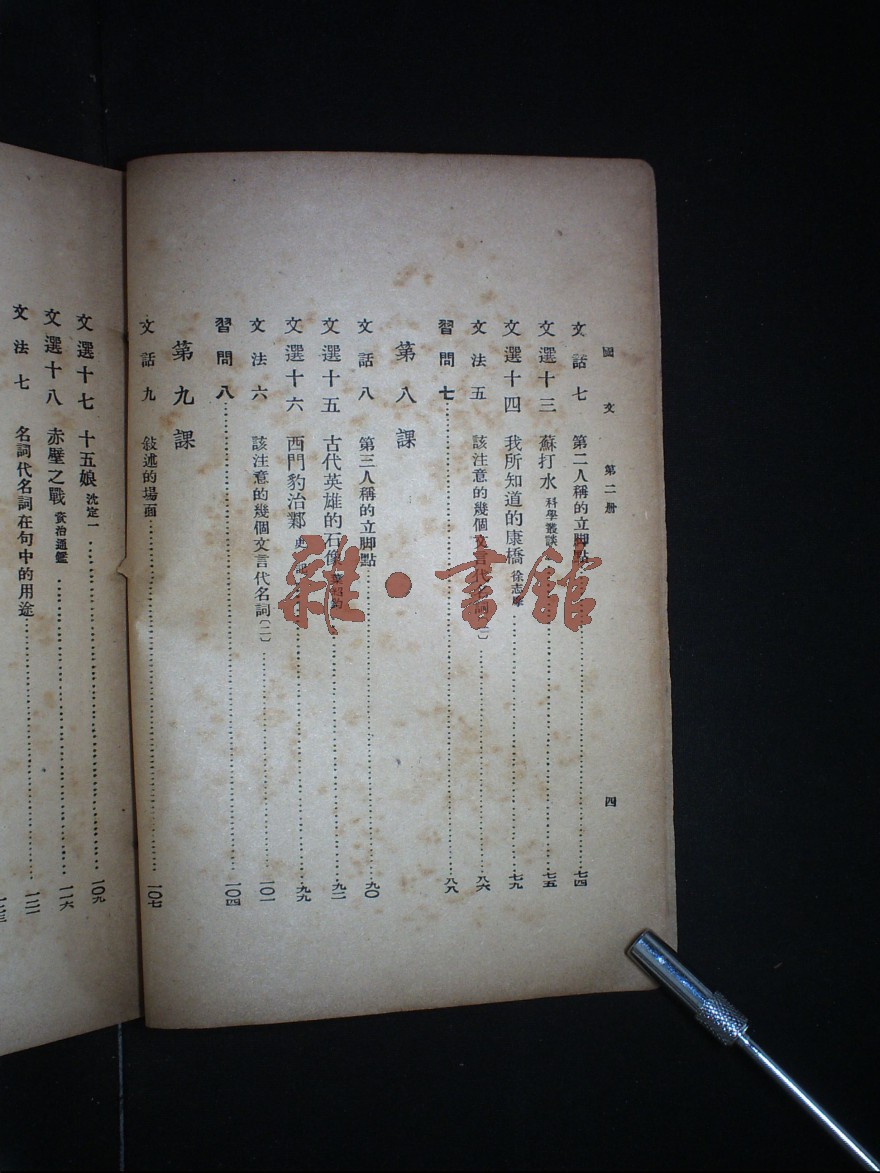 國文　第二册　四
文話七　第二人稱的立脚點……七四
文選十三　蘇打水 科學叢談……七五
文選十四　我所知道的康橋 徐志摩……七九
文法五　該注意的幾個文言代名詞(一)……八六
習問七……八八
第八課
文話八　第三人稱的立脚點……九〇
文選十五　古代英雄的石像 葉紹鈞……九二
文選十六　西門豹治鄴 史記……九九
文法六　該注意的幾個文言代名詞(二)……一〇一
習問八……一〇四
第九課
文話九　敍述的場面……一〇七
文選十七　十五娘 沈定一……一〇九
文選十八　赤壁之戰 資治通鑑……一一六
文法七　名詞代名詞在句中的用途……一二一
雜·書館